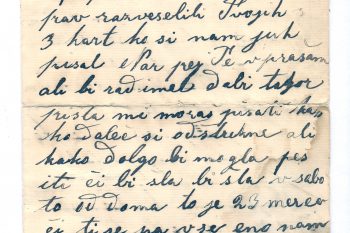 prav razveselili Tvojih
3 kart ko si nam jih
pisal Par pej Te vprašam
ali bi rad imel da bi tegor
prišla mi moraš pisati kak
ko daleč si od štirkne ali
kako dolgo bi mogla peš
iti či bi šla bi šla v sabo
to od doma to je 23 marca
či ti se pa vse eno nam